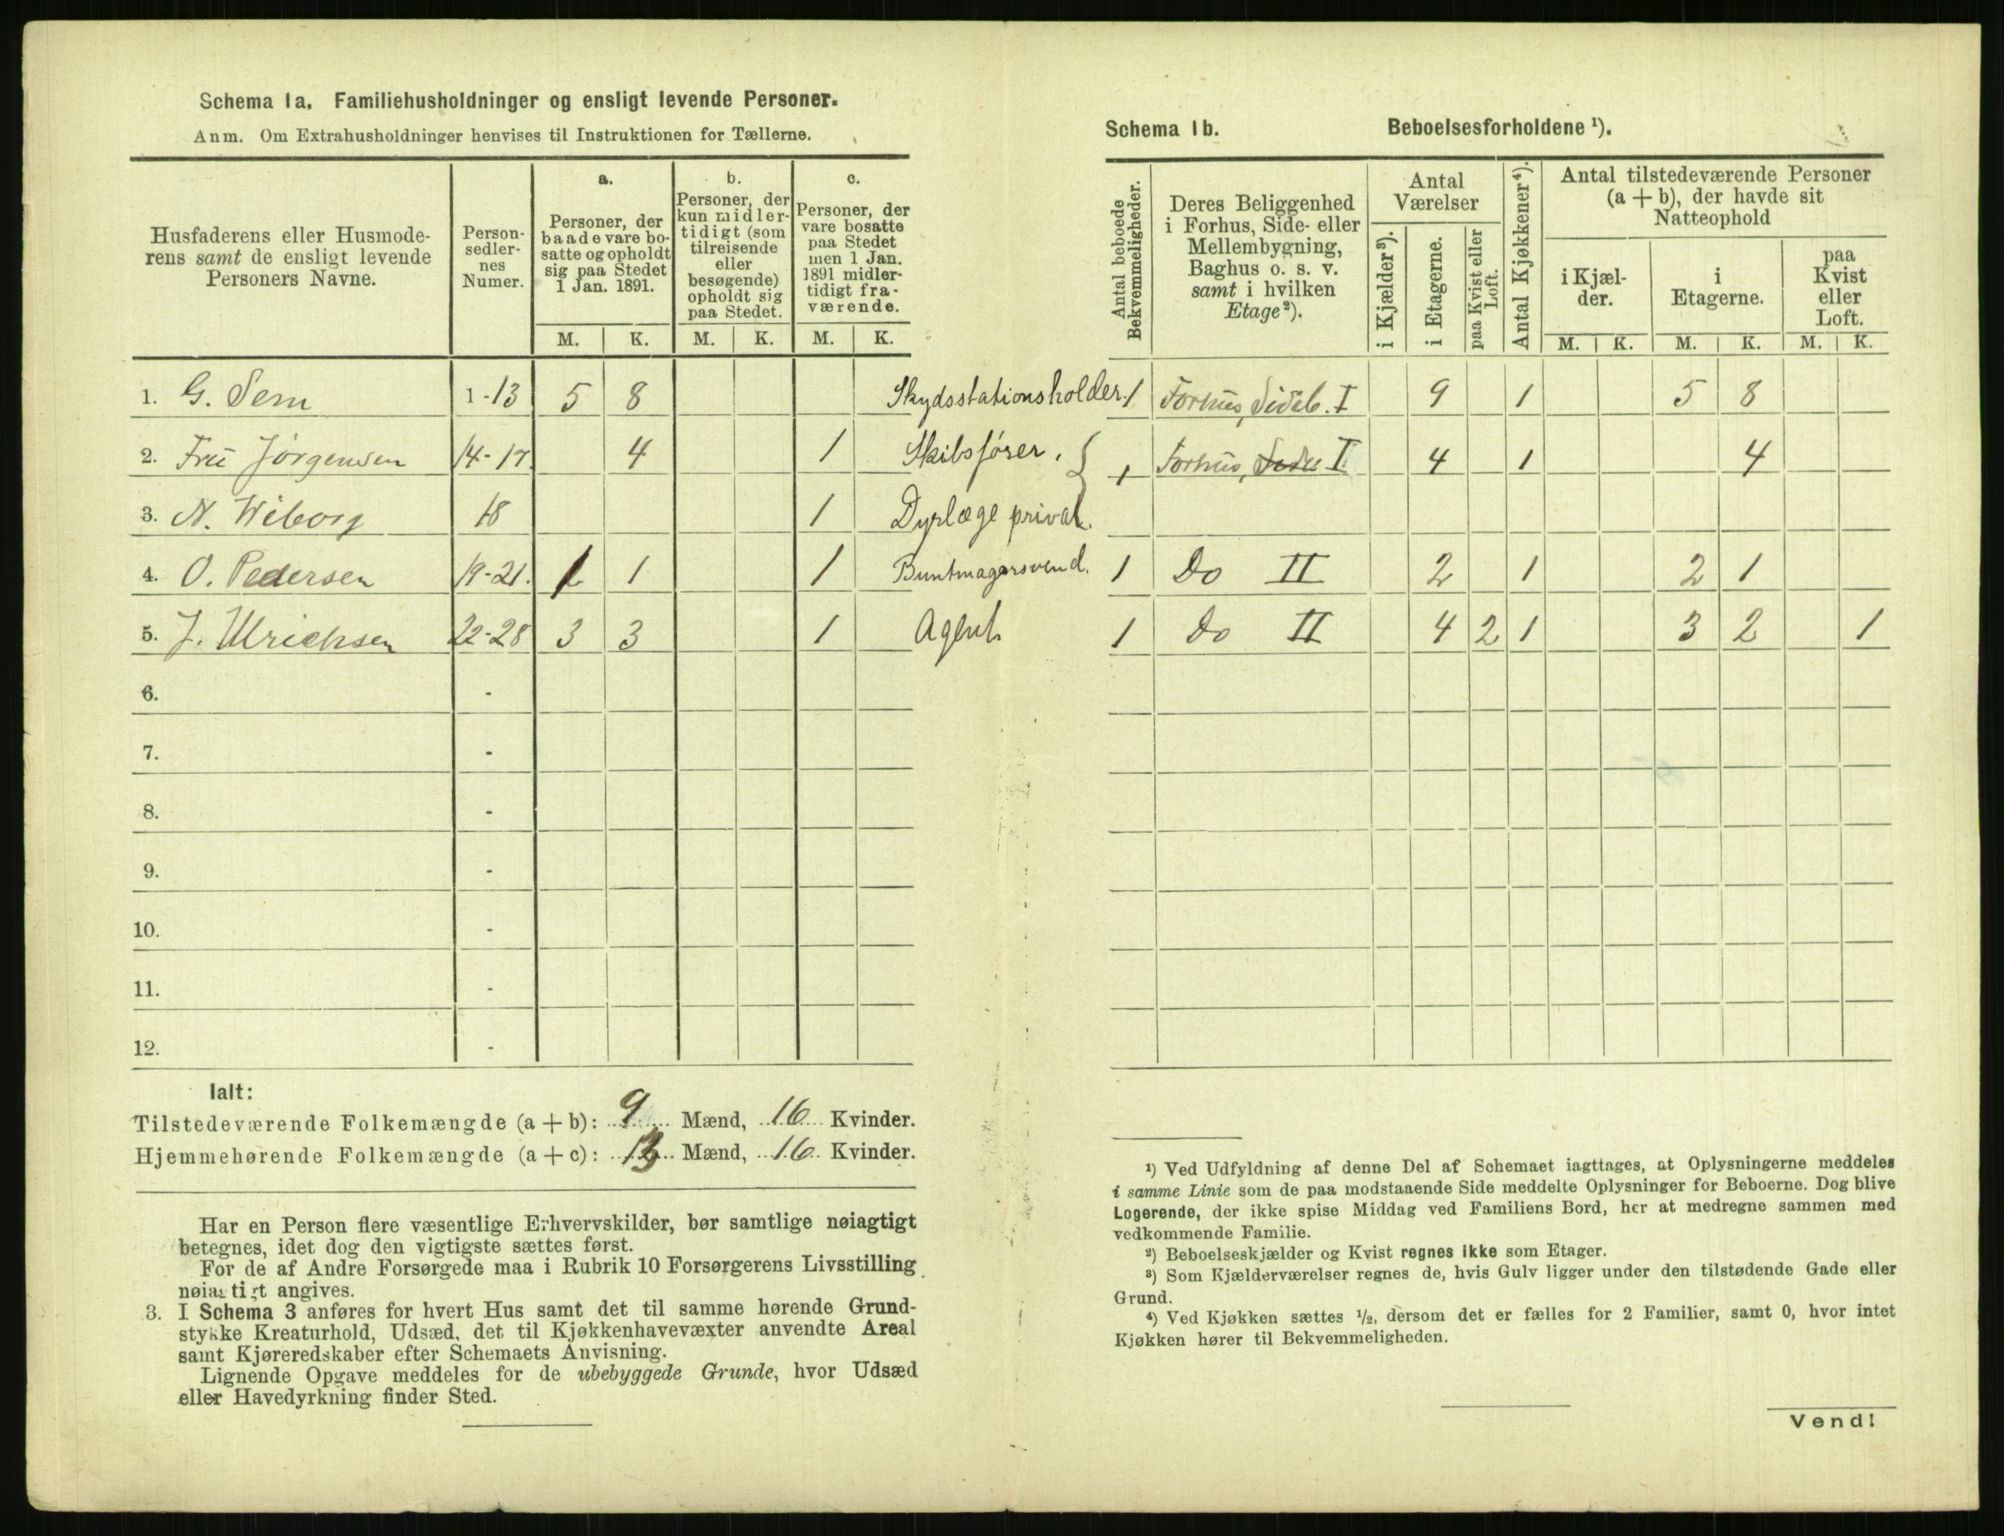 Schema 1a. Familiehusholdninger og ensligt levende Personer.
Anm. Om Extrahusholdninger henvises til Instruktionen for Tællerne.
Husfaderens eller Husmode-
rens samt de ensligt levende
Personers Navne.
Person-
sedler-
nes
Numer.
a.
Personer, der
baade vare bo-
satte og opholdt
sig paa Stedet
1 Jan. 1891.
b.
Personer, der
kun midler-
tidigt (som
tilreisende
eller
besøgende)
opholdt sig
paa Stedet.
c.
Personer, der
vare bosatte
paa Stedet
men 1 Jan.
1891 midler-
tidigt fra-
værende.
M. K. M. K. M. K.
1. G. Sem 1-13 5 8 Skydsstationsholder.
2. Fru Jørgensen 14-17 4 1 Skibsfører.
3. N. Wiborg 18 1 Dyrlæge privat.
4. O. Pedersen 19-21. 1 1 Buntmagersvend.
5. J. Ulrichsen 22-28 3 3 1 Agent
6. -
7. -
8. -
9. -
10. -
11. -
12. -
Ialt:
Tilstedeværende Folkemængde (a + b): 9 Mænd, 16 Kvinder.
Hjemmehørende Folkemængde (a + c): 13 Mænd, 16 Kvinder.
Har en Person flere væsentlige Erhvervskilder, bør samtlige nøiagtigt
betegnes, idet dog den vigtigste sættes først.
For de af Andre Forsørgede maa i Rubrik 10 Forsørgerens Livsstilling
nøiagtigt angives.
3. I Schema 3 anføres for hvert Hus samt det til samme hørende Grund-
stykke Kreaturhold, Udsæd, det til Kjøkkenhavevæxter anvendte Areal
samt Kjøreredskaber efter Schemaets Anvisning.
Lignende Opgave meddeles for de ubebyggede Grunde, hvor Udsæd
eller Havedyrkning finder Sted.
Schema 1b. Beboelsesforholdene ¹).
Antal beboede
Bekvemmeligheder.
Deres Beliggenhed
i Forhus, Side- eller
Mellembygning,
Baghus o. s. v.
samt i hvilken
Etage²).
Antal
Værelser
i Kjælder³).
i Etagerne.
paa Kvist eller
Loft.
Antal Kjøkkener⁴).
Antal tilstedeværende Personer
(a + b), der havde sit
Natteophold
i Kjæl-
der.
i
Etagerne.
paa
Kvist
eller
Loft.
M. K. M. K. M. K.
1 Forhus, Sideb. I 9 1 5 8
1 Forhus, Side I 4 1 4
1 Do II 2 1 2 1
1 Do II 4 2 1 3 2 1
¹) Ved Udfyldning af denne Del af Schemaet iagttages, at Oplysningerne meddeles
i samme Linie som de paa modstaaende Side meddelte Oplysninger for Beboerne. Dog blive
Logerende, der ikke spise Middag ved Familiens Bord, her at medregne sammen med
vedkommende Familie.
²) Beboelseskjælder og Kvist regnes ikke som Etager.
³) Som Kjælderværelser regnes de, hvis Gulv ligger under den tilstødende Gade eller
Grund.
⁴) Ved Kjøkken sættes ½, dersom det er fælles for 2 Familier, samt 0, hvor intet
Kjøkken hører til Bekvemmeligheden.
Vend!